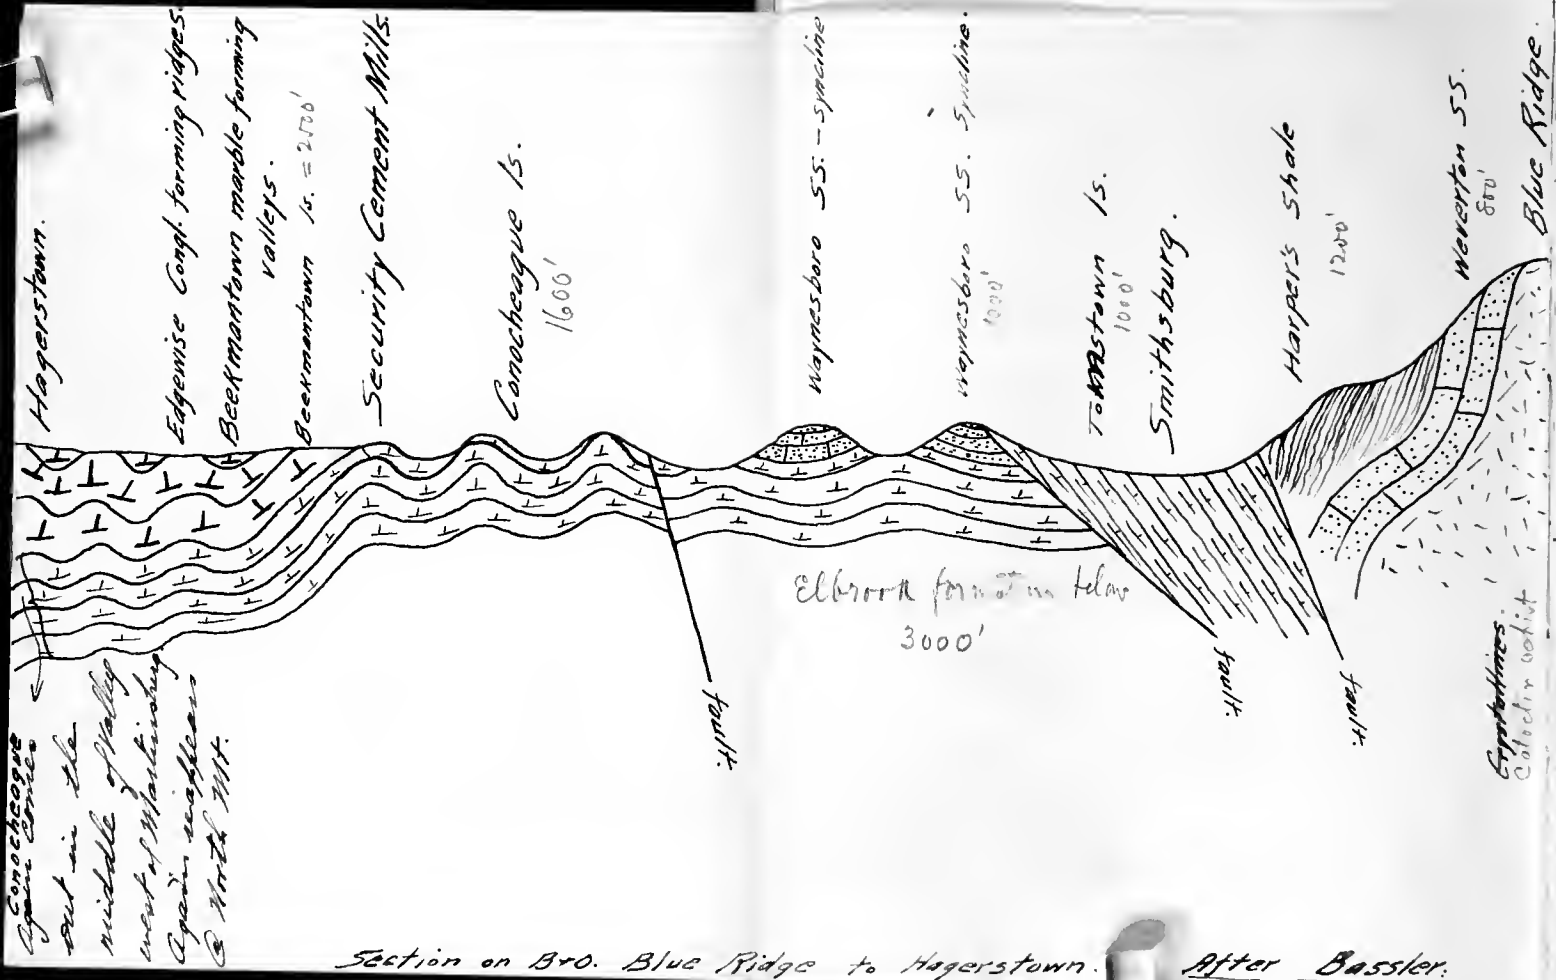 Hagerstown.
Edgewise Congl. forming ridges.
Beekmantown marble forming
valleys.
Beekmantown ls. = 2500'
Security Cement Mills.
Conocheague ls.
1600'
Waynesboro SS. - syncline
Waynesboro SS. Syncline.
1000'
Tomstown ls.
1000'
Smithsburg.
Harper's Shale
1200'
Weverton SS.
800'
Blue Ridge.
Elbrook formation below
3000'
fault.
fault.
fault.
Catoctin schist
Conocheague
again comes
out in the
middle of valley
west of Martinsburg.
Again reappears
@ North Mt.
Section on B+O. Blue Ridge to Hagerstown. After Bassler.